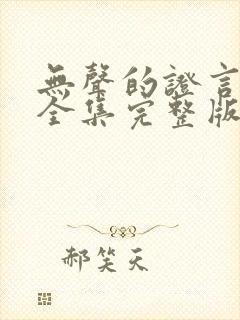 無聲的證言
全集完整版
郝笑天